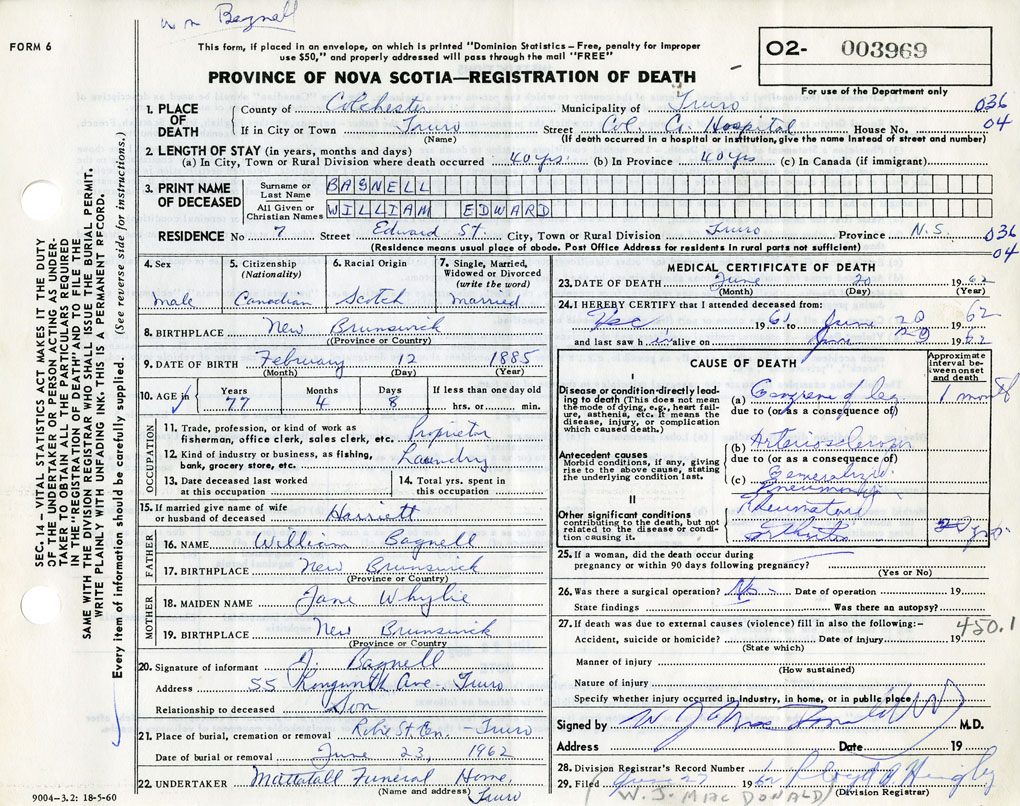 Wm Bagnell
FORM 6
This form, if placed in an envelope, on which is printed "Dominion Statistics—Free, penalty for improper
use $50," and properly addressed will pass through the mail "FREE"
PROVINCE OF NOVA SCOTIA—REGISTRATION OF DEATH
O2- 003969
For use of the Department only
1. PLACE OF DEATH
County of Colchester Municipality of Truro 036
If in City or Town Truro Street Col. Co. Hospital House No. 04
(Name) (If death occurred in a hospital or institution, give the name instead of street and number)
2. LENGTH OF STAY (in years, months and days)
(a) In City, Town or Rural Division where death occurred 40 yrs. (b) In Province 40 yrs (c) In Canada (if immigrant)
3. PRINT NAME OF DECEASED
Surname or Last Name BAGNELL
All Given or Christian Names WILLIAM EDWARD
RESIDENCE No 7 Street Edward St. City, Town or Rural Division Truro Province N.S. 036
(Residence means usual place of abode. Post Office Address for residents in rural parts not sufficient) 04
4. Sex
male
5. Citizenship
(Nationality)
Canadian
6. Racial Origin
Scotch
7. Single, Married,
Widowed or Divorced
(write the word)
married
8. BIRTHPLACE New Brunswick
(Province or Country)
9. DATE OF BIRTH February 12 1885
(Month) (Day) (Year)
10. AGE in
Years Months Days If less than one day old
77 4 8 hrs. or min.
OCCUPATION
11. Trade, profession, or kind of work as
fisherman, office clerk, sales clerk, etc. Proprietor
12. Kind of industry or business, as fishing,
bank, grocery store, etc. Laundry
13. Date deceased last worked
at this occupation
14. Total yrs. spent in
this occupation
15. If married give name of wife
or husband of deceased Harriett
FATHER
16. NAME William Bagnell
17. BIRTHPLACE New Brunswick
(Province or Country)
MOTHER
18. MAIDEN NAME Jane Whylie
19. BIRTHPLACE New Brunswick
(Province or Country)
20. Signature of informant J. Bagnell
Address 55 Ave. Truro
Relationship to deceased Son
21. Place of burial, cremation or removal Robie St. Cem. - Truro
Date of burial or removal June 23, 1962
22. UNDERTAKER Mattatall Funeral Home,
(Name and address) Truro
9004-3.2: 18-5-60
MEDICAL CERTIFICATE OF DEATH
23. DATE OF DEATH June 20 1962
(Month) (Day) (Year)
24. I HEREBY CERTIFY that I attended deceased from:
Dec 1961 to June 20 1962
and last saw him alive on June 20 1962
CAUSE OF DEATH
Approximate
interval be-
tween onset
and death
I
Disease or condition directly lead-
ing to death (This does not mean
the mode of dying, e.g., heart fail-
ure, asthenia, etc. It means the
disease, injury, or complication
which caused death.)
(a) Gangrene of leg 1 month
due to (or as a consequence of)
Antecedent causes
Morbid conditions, if any, giving
rise to the above cause, stating
the underlying condition last.
(b) Arteriosclerosis
due to (or as a consequence of)
(c) Generalized.
Pneumonia
II
Other significant conditions
contributing to the death, but not
related to the disease or condi-
tion causing it.
Rheumatoid
Arthritis 20 yrs.
25. If a woman, did the death occur during
pregnancy or within 90 days following pregnancy?
(Yes or No)
26. Was there a surgical operation? No Date of operation 19
State findings Was there an autopsy?
27. If death was due to external causes (violence) fill in also the following:- 450.1
Accident, suicide or homicide? Date of injury 19
(State which)
Manner of injury
(How sustained)
Nature of injury
Specify whether injury occurred in industry, in home, or in public place
Signed by W J MacDonald MD M.D.
Address Date 19
28. Division Registrar's Record Number
29. Filed June 27 1962 Lloyd
(Division Registrar)
W. J. MAC DONALD
SEC. 14 – VITAL STATISTICS ACT MAKES IT THE DUTY
OF THE UNDERTAKER OR PERSON ACTING AS UNDER-
TAKER TO OBTAIN ALL THE PARTICULARS REQUIRED
IN THE "REGISTRATION OF DEATH" AND TO FILE THE
SAME WITH THE DIVISION REGISTRAR WHO SHALL ISSUE THE BURIAL PERMIT.
WRITE PLAINLY WITH UNFADING INK. THIS IS A PERMANENT RECORD.
Every item of information should be carefully supplied. (See reverse side for instructions.)